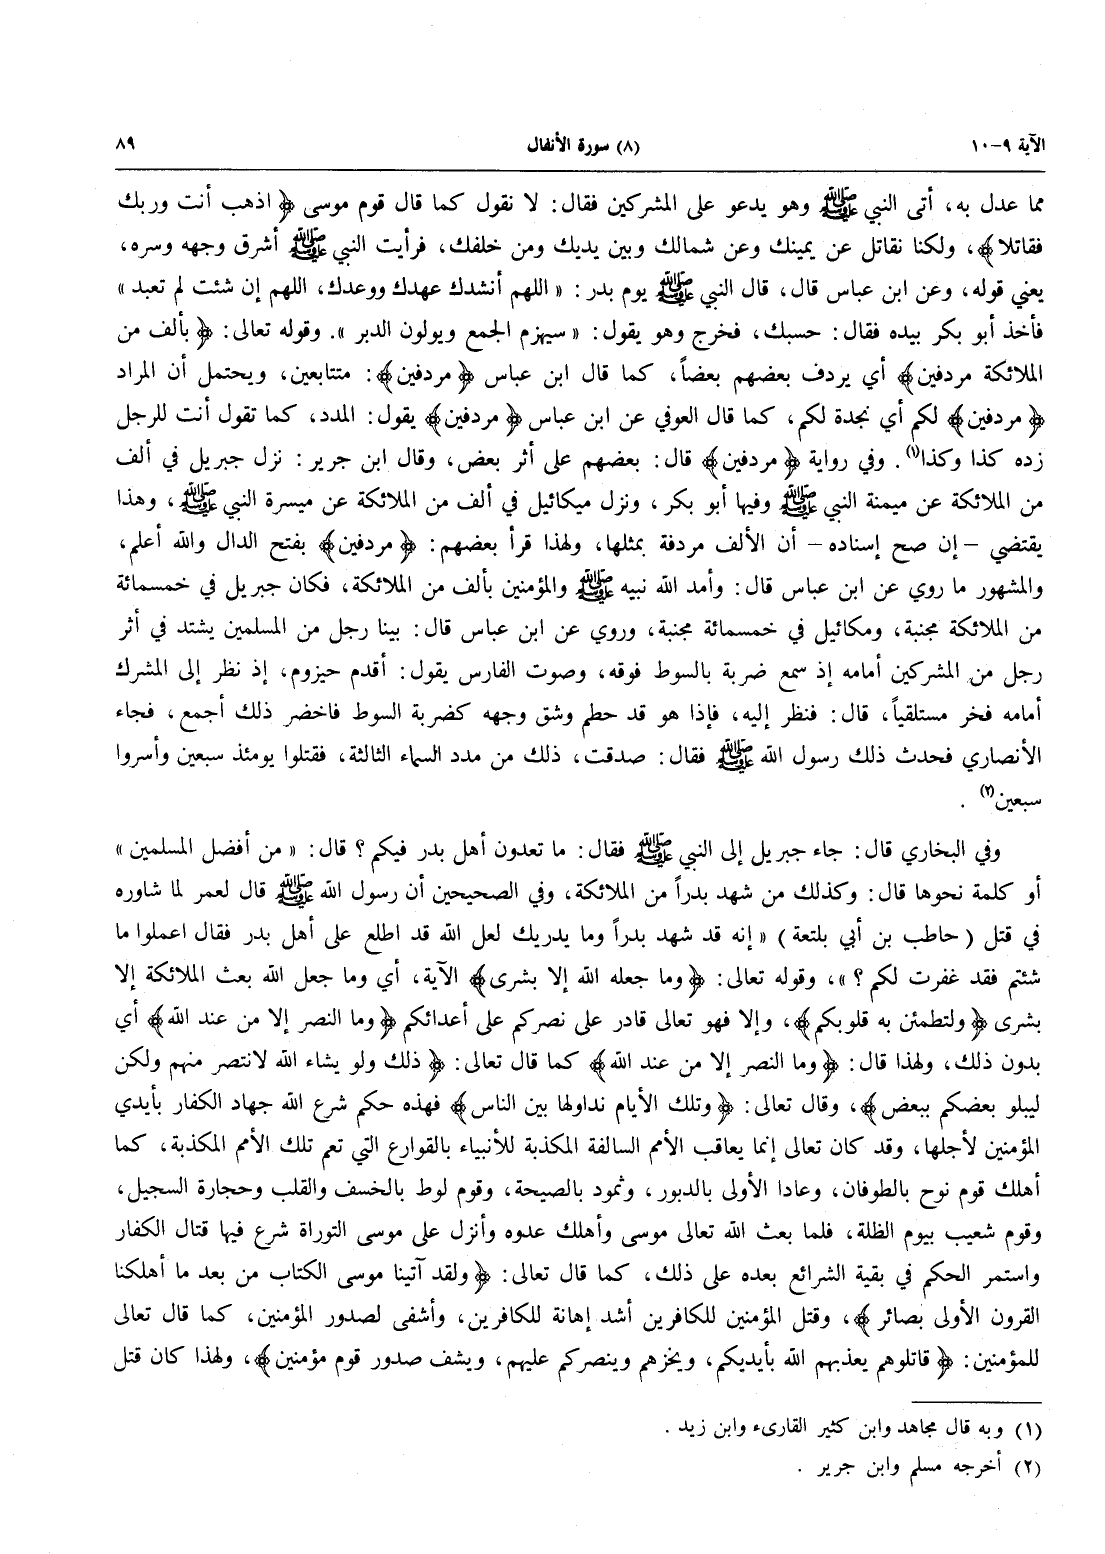 الآية ٩-١٠ (٨) سورة الأنفال ٨٩
مما عدل به، أتى النبي ﷺ وهو يدعو على المشركين فقال: لا نقول كما قال قوم موسى ﴿ اذهب أنت وربك
فقاتلا﴾، ولكنا نقاتل عن يمينك وعن شمالك وبين يديك ومن خلفك، فرأيت النبي ﷺ أشرق وجهه وسره،
يعني قوله، وعن ابن عباس قال، قال النبي ﷺ يوم بدر: « اللهم أنشدك عهدك ووعدك، اللهم إن شئت لم تعبد »
فأخذ أبو بكر بيده فقال: حسبك، فخرج وهو يقول: « سيهزم الجمع ويولون الدبر ». وقوله تعالى: ﴿ بألف من
الملائكة مردفين﴾ أي يردف بعضهم بعضاً، كما قال ابن عباس ﴿مردفين﴾: متتابعين، ويحتمل أن المراد
﴿ مردفين﴾ لكم أي نجدة لكم، كما قال العوفي عن ابن عباس ﴿مردفين﴾ يقول: المدد، كما تقول أنت للرجل
زده كذا وكذا(١). وفي رواية ﴿ مردفين﴾ قال: بعضهم على أثر بعض، وقال ابن جرير: نزل جبريل في ألف
من الملائكة عن ميمنة النبي ﷺ وفيها أبو بكر، ونزل ميكائيل في ألف من الملائكة عن ميسرة النبي ﷺ، وهذا
يقتضي - إن صح إسناده - أن الألف مردفة بمثلها، ولهذا قرأ بعضهم: ﴿ مردفين﴾ بفتح الدال والله أعلم،
والمشهور ما روي عن ابن عباس قال: وأمد الله نبيه ﷺ والمؤمنين بألف من الملائكة، فكان جبريل في خمسمائة
من الملائكة مجنبة، ومكائيل في خمسمائة مجنبة، وروي عن ابن عباس قال: بينا رجل من المسلمين يشتد في أثر
رجل من المشركين أمامه إذ سمع ضربة بالسوط فوقه، وصوت الفارس يقول: أقدم حيزوم، إذ نظر إلى المشرك
أمامه فخر مستلقياً، قال: فنظر إليه، فإذا هو قد حطم وشق وجهه كضربة السوط فاخضر ذلك أجمع، فجاء
الأنصاري فحدث ذلك رسول الله ﷺ فقال: صدقت، ذلك من مدد السماء الثالثة، فقتلوا يومئذ سبعين وأسروا
سبعين(٢) .
وفي البخاري قال: جاء جبريل إلى النبي ﷺ فقال: ما تعدون أهل بدر فيكم؟ قال: « من أفضل المسلمين »
أو كلمة نحوها قال: وكذلك من شهد بدراً من الملائكة، وفي الصحيحين أن رسول الله ﷺ قال لعمر لما شاوره
في قتل ( حاطب بن أبي بلتعة ) « إنه قد شهد بدراً وما يدريك لعل الله قد اطلع على أهل بدر فقال اعملوا ما
شئتم فقد غفرت لكم؟ »، وقوله تعالى: ﴿وما جعله الله إلا بشرى﴾ الآية، أي وما جعل الله بعث الملائكة إلا
بشرى ﴿ولتطمئن به قلوبكم﴾، وإلا فهو تعالى قادر على نصركم على أعدائكم ﴿وما النصر إلا من عند الله﴾ أي
بدون ذلك، ولهذا قال: ﴿وما النصر إلا من عند الله﴾ كما قال تعالى: ﴿ ذلك ولو يشاء الله لانتصر منهم ولكن
ليبلو بعضكم ببعض﴾، وقال تعالى: ﴿ وتلك الأيام نداولها بين الناس﴾ فهذه حكم شرع الله جهاد الكفار بأيدي
المؤمنين لأجلها، وقد كان تعالى إنما يعاقب الأمم السالفة المكذبة للأنبياء بالقوارع التي تعم تلك الأمم المكذبة، كما
أهلك قوم نوح بالطوفان، وعادا الأولى بالدبور، وثمود بالصيحة، وقوم لوط بالخسف والقلب وحجارة السجيل،
وقوم شعيب بيوم الظلة، فلما بعث الله تعالى موسى وأهلك عدوه وأنزل على موسى التوراة شرع فيها قتال الكفار
واستمر الحكم في بقية الشرائع بعده على ذلك، كما قال تعالى: ﴿ ولقد آتينا موسى الكتاب من بعد ما أهلكنا
القرون الأولى بصائر ﴾، وقتل المؤمنين للكافرين أشد إهانة للكافرين، وأشفى لصدور المؤمنين، كما قال تعالى
للمؤمنين: ﴿ قاتلوهم يعذبهم الله بأيديكم، ويخزهم وينصركم عليهم، ويشف صدور قوم مؤمنين﴾، ولهذا كان قتل
(١) وبه قال مجاهد وابن كثير القارىء وابن زيد .
(٢) أخرجه مسلم وابن جرير .